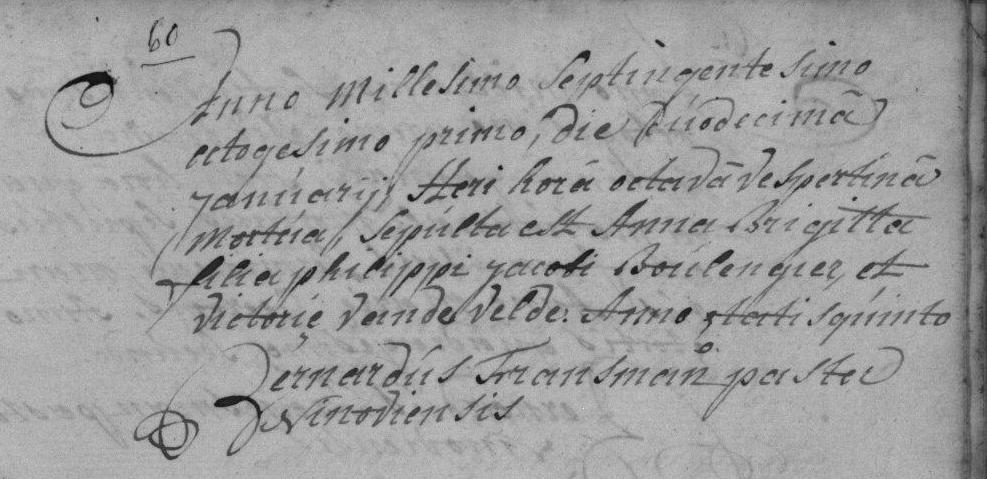 60
Anno Millesimo Septingentesimo
octogesimo primo, die Duodecimâ
januarij, Heri horâ octavâ vespertinâ
Mortua, Sepulta est Anna Brigitta
filia philippi jacobi Boulengier, et
victorie vande velde. Anno ætatis quinto
Bernardus Fransman pastor
Ninoviensis